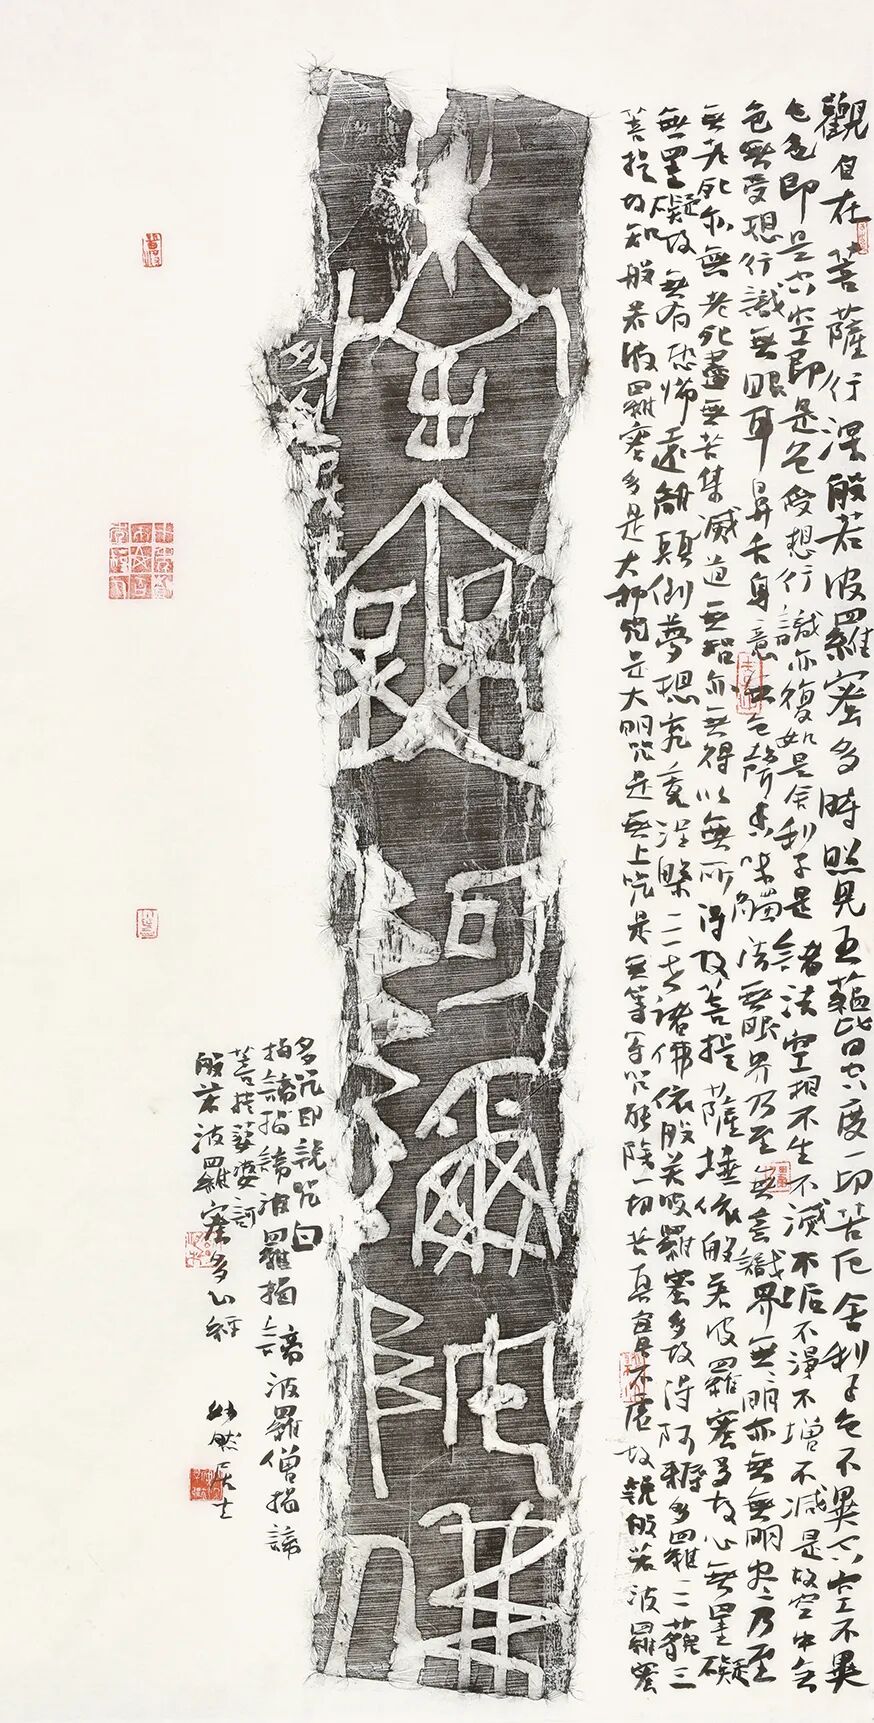 觀自在菩薩行深般若波羅蜜多時照見五蘊皆空度一切苦厄舍利子色不異空空不異
色色即是空空即是色受想行識亦復如是舍利子是諸法空相不生不滅不垢不淨不增不減是故空中無
色無受想行識無眼耳鼻舌身意無色聲香味觸法無眼界乃至無意識界無無明亦無無明盡乃至
無老死亦無老死盡無苦集滅道無智亦無得以無所得故菩提薩埵依般若波羅蜜多故心無罣礙
無罣礙故無有恐怖遠離顛倒夢想究竟涅槃三世諸佛依般若波羅蜜多故得阿耨多羅三藐三
菩提故知般若波羅蜜多是大神咒是大明咒是無上咒是無等等咒能除一切苦真實不虛故說般若波羅蜜
阿彌陀佛
多咒即說咒曰
揭諦揭諦波羅揭諦波羅僧揭諦
菩提薩婆訶
般若波羅蜜多心經
妙然居士